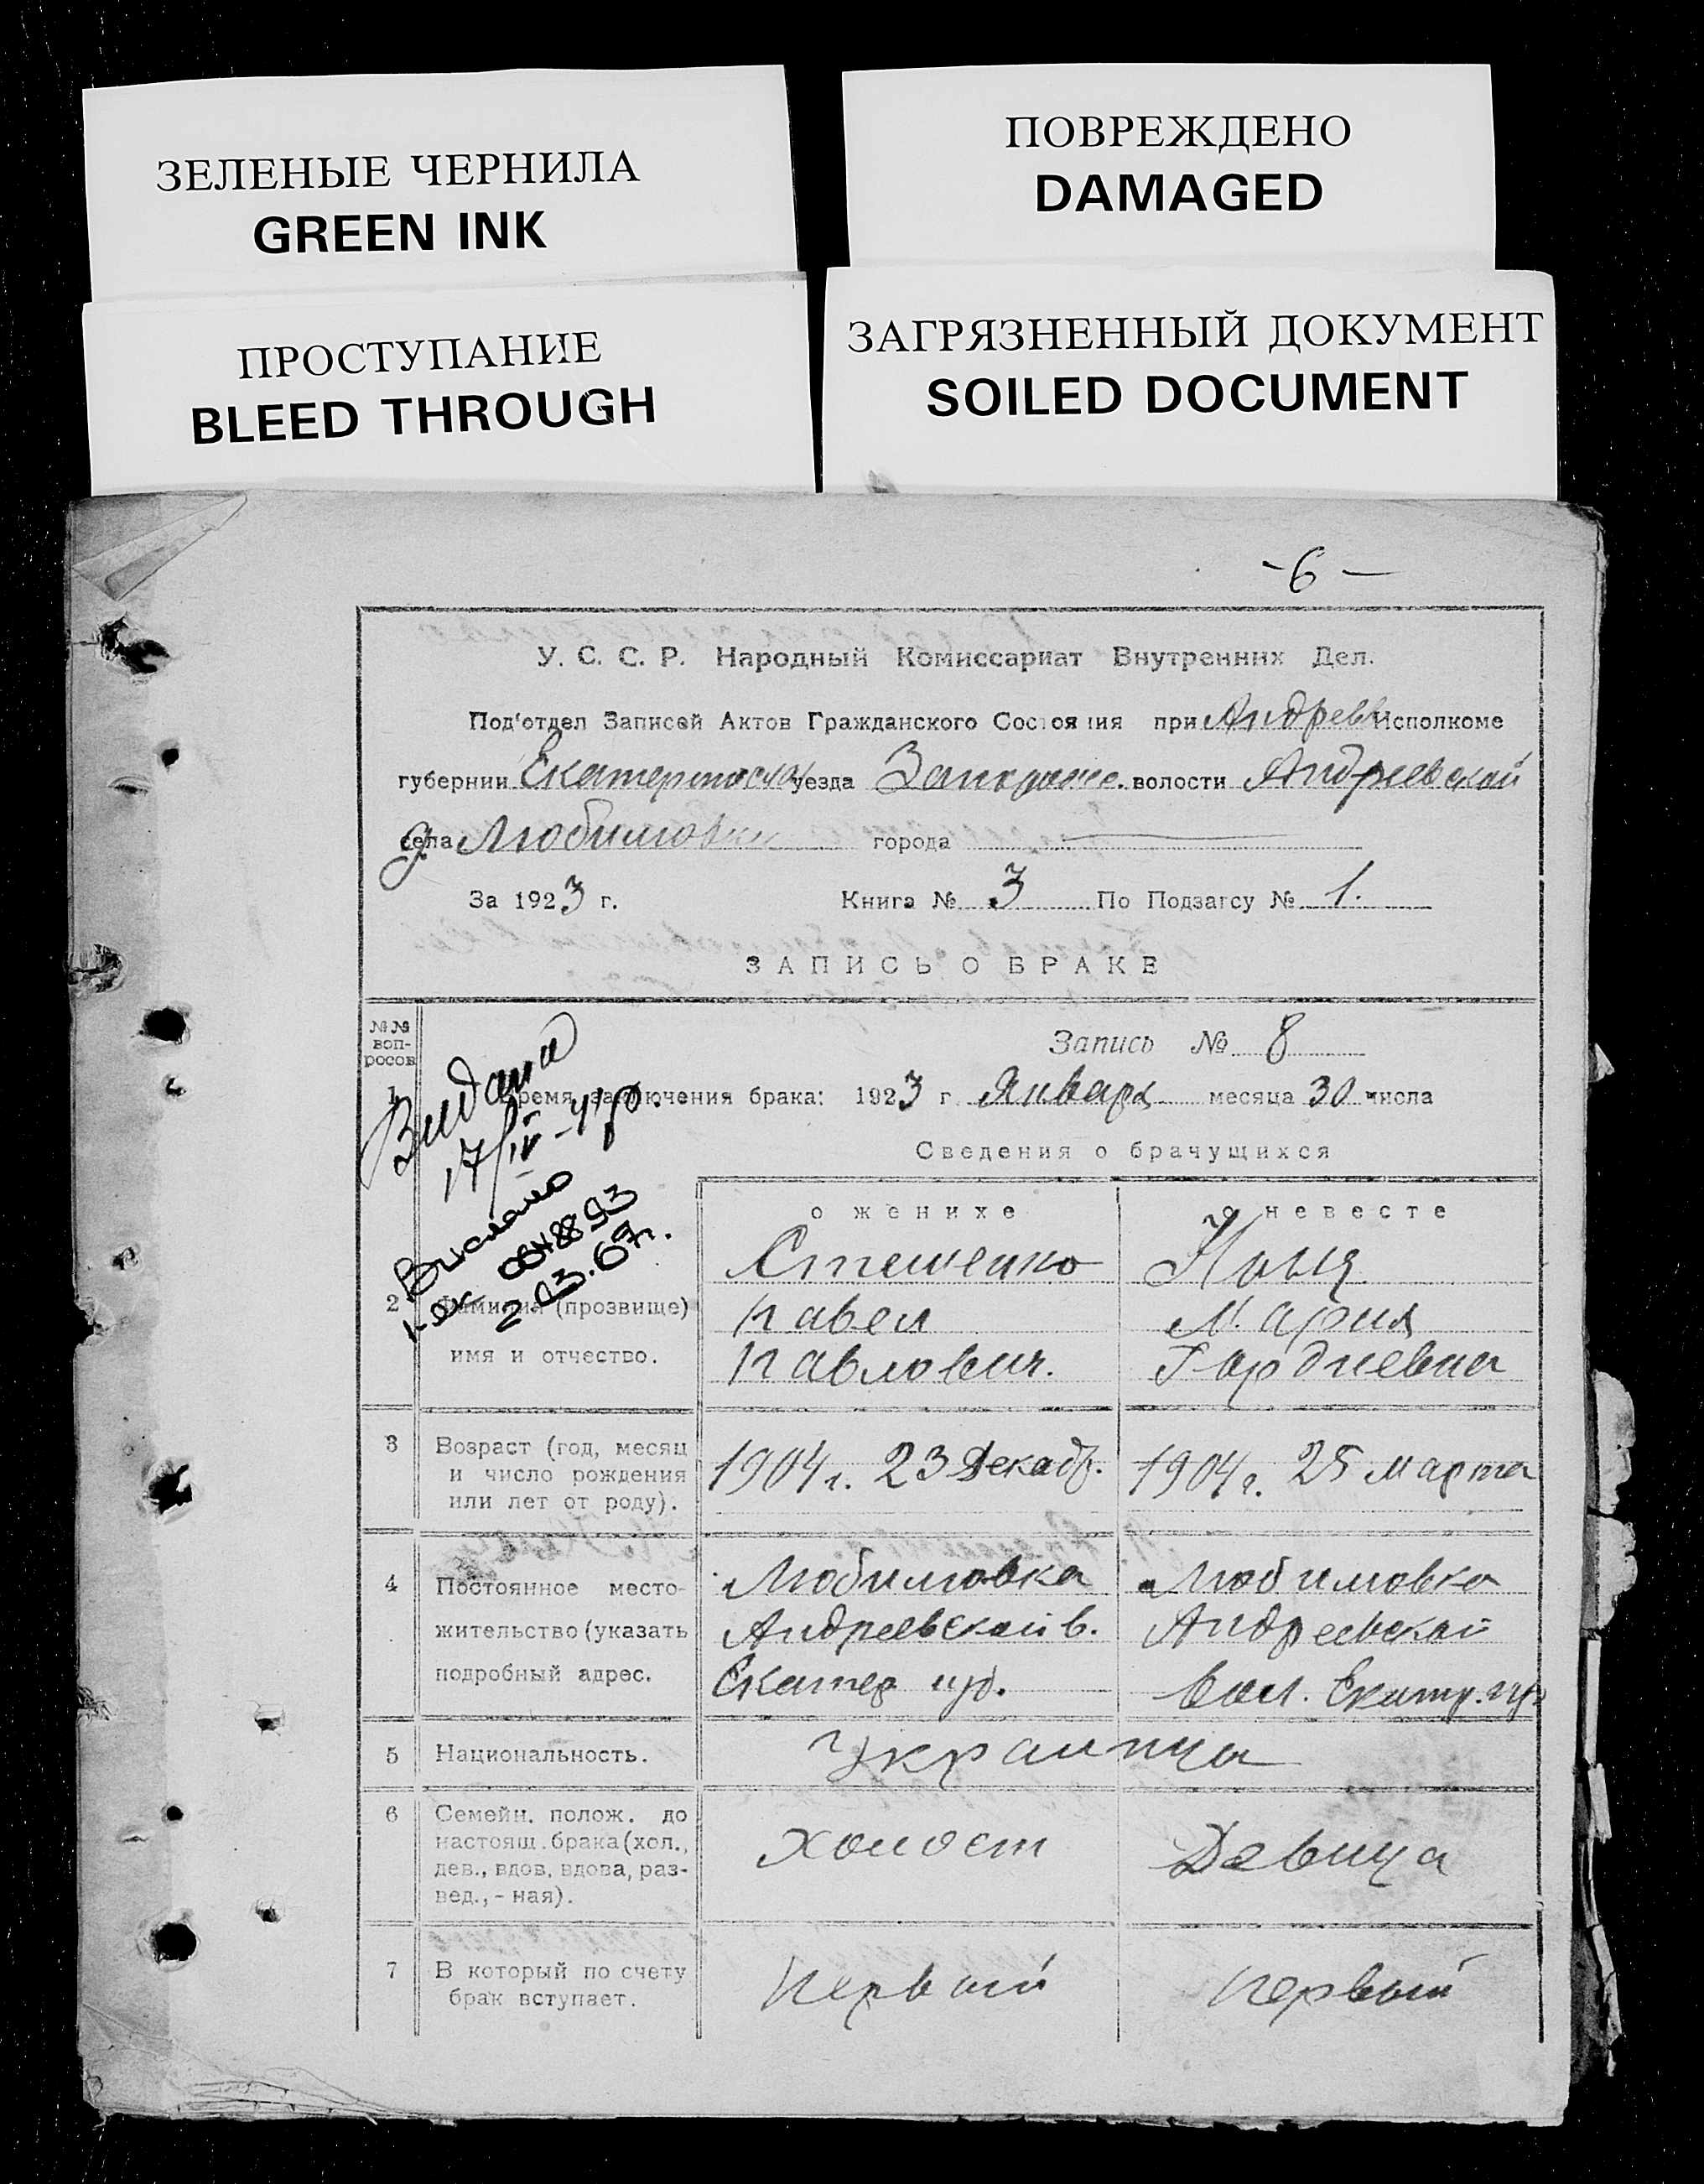 ЗЕЛЕНЫЕ ЧЕРНИЛА
GREEN INK
ПОВРЕЖДЕНО
DAMAGED
ПРОСТУПАНИЕ
BLEED THROUGH
ЗАГРЯЗНЕННЫЙ ДОКУМЕНТ
SOILED DOCUMENT
-6-
У. С. С. Р. Народный Комиссариат Внутренних Дел.
Под'отдел Записей Актов Гражданского Состояния при Андреев Исполкоме
губернии уезда Запорожс. волости Андреевской
села Любимовки города
За 1923 г. Книга № 3 По Подзагсу № 1.
ЗАПИСЬ О БРАКЕ
№№ воп-
росов
Запись № 8
1 Время заключения брака: 1923 г. Января месяца 30 числа
Видана
17/IV-41р.
Сведения о брачущихся
о женихе о невесте
Вислано
2 03.67г.
2 Фамилия (прозвище)
имя и отчество.
Стешенко
Павел
Павлович.
Мария
Гордиевна
3 Возраст (год, месяц
и число рождения
или лет от роду).
1904 г. 23 Декабр. 1904 г. 25 марта
4 Постоянное место-
жительство (указать
подробный адрес.
Любимовка
Андреевской в.
Екатер губ.
Любимовка
Андреевской
вол. Екатер. губ.
5 Национальность. Украинца
6 Семейн. полож. до
настоящ. брака (хол.,
дев., вдов, вдова, раз-
вед., - ная).
холост Девица
7 В который по счету
брак вступает.
Первый Первый